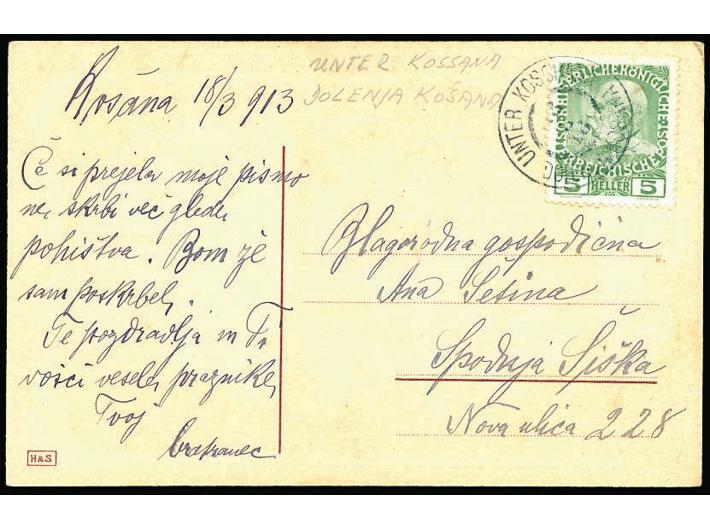 Košana 18/3 913
UNTER KOSSANA
DOLENJA KOŠANA
UNTER KOSCHANA
KAISERLICHE KÖNIGLICHE
ÖSTERREICHISCHE POST
5 HELLER 5
Če si prejela moje pismo
ne skrbi več glede
pohištva. Bom že
sam poskrbel,
Te pozdravlja in Ti
vošči vesele praznike,
Tvoj
Blagorodna gospodična
Ana Setina
Spodnja Šiška
Nova ulica 228
H&S